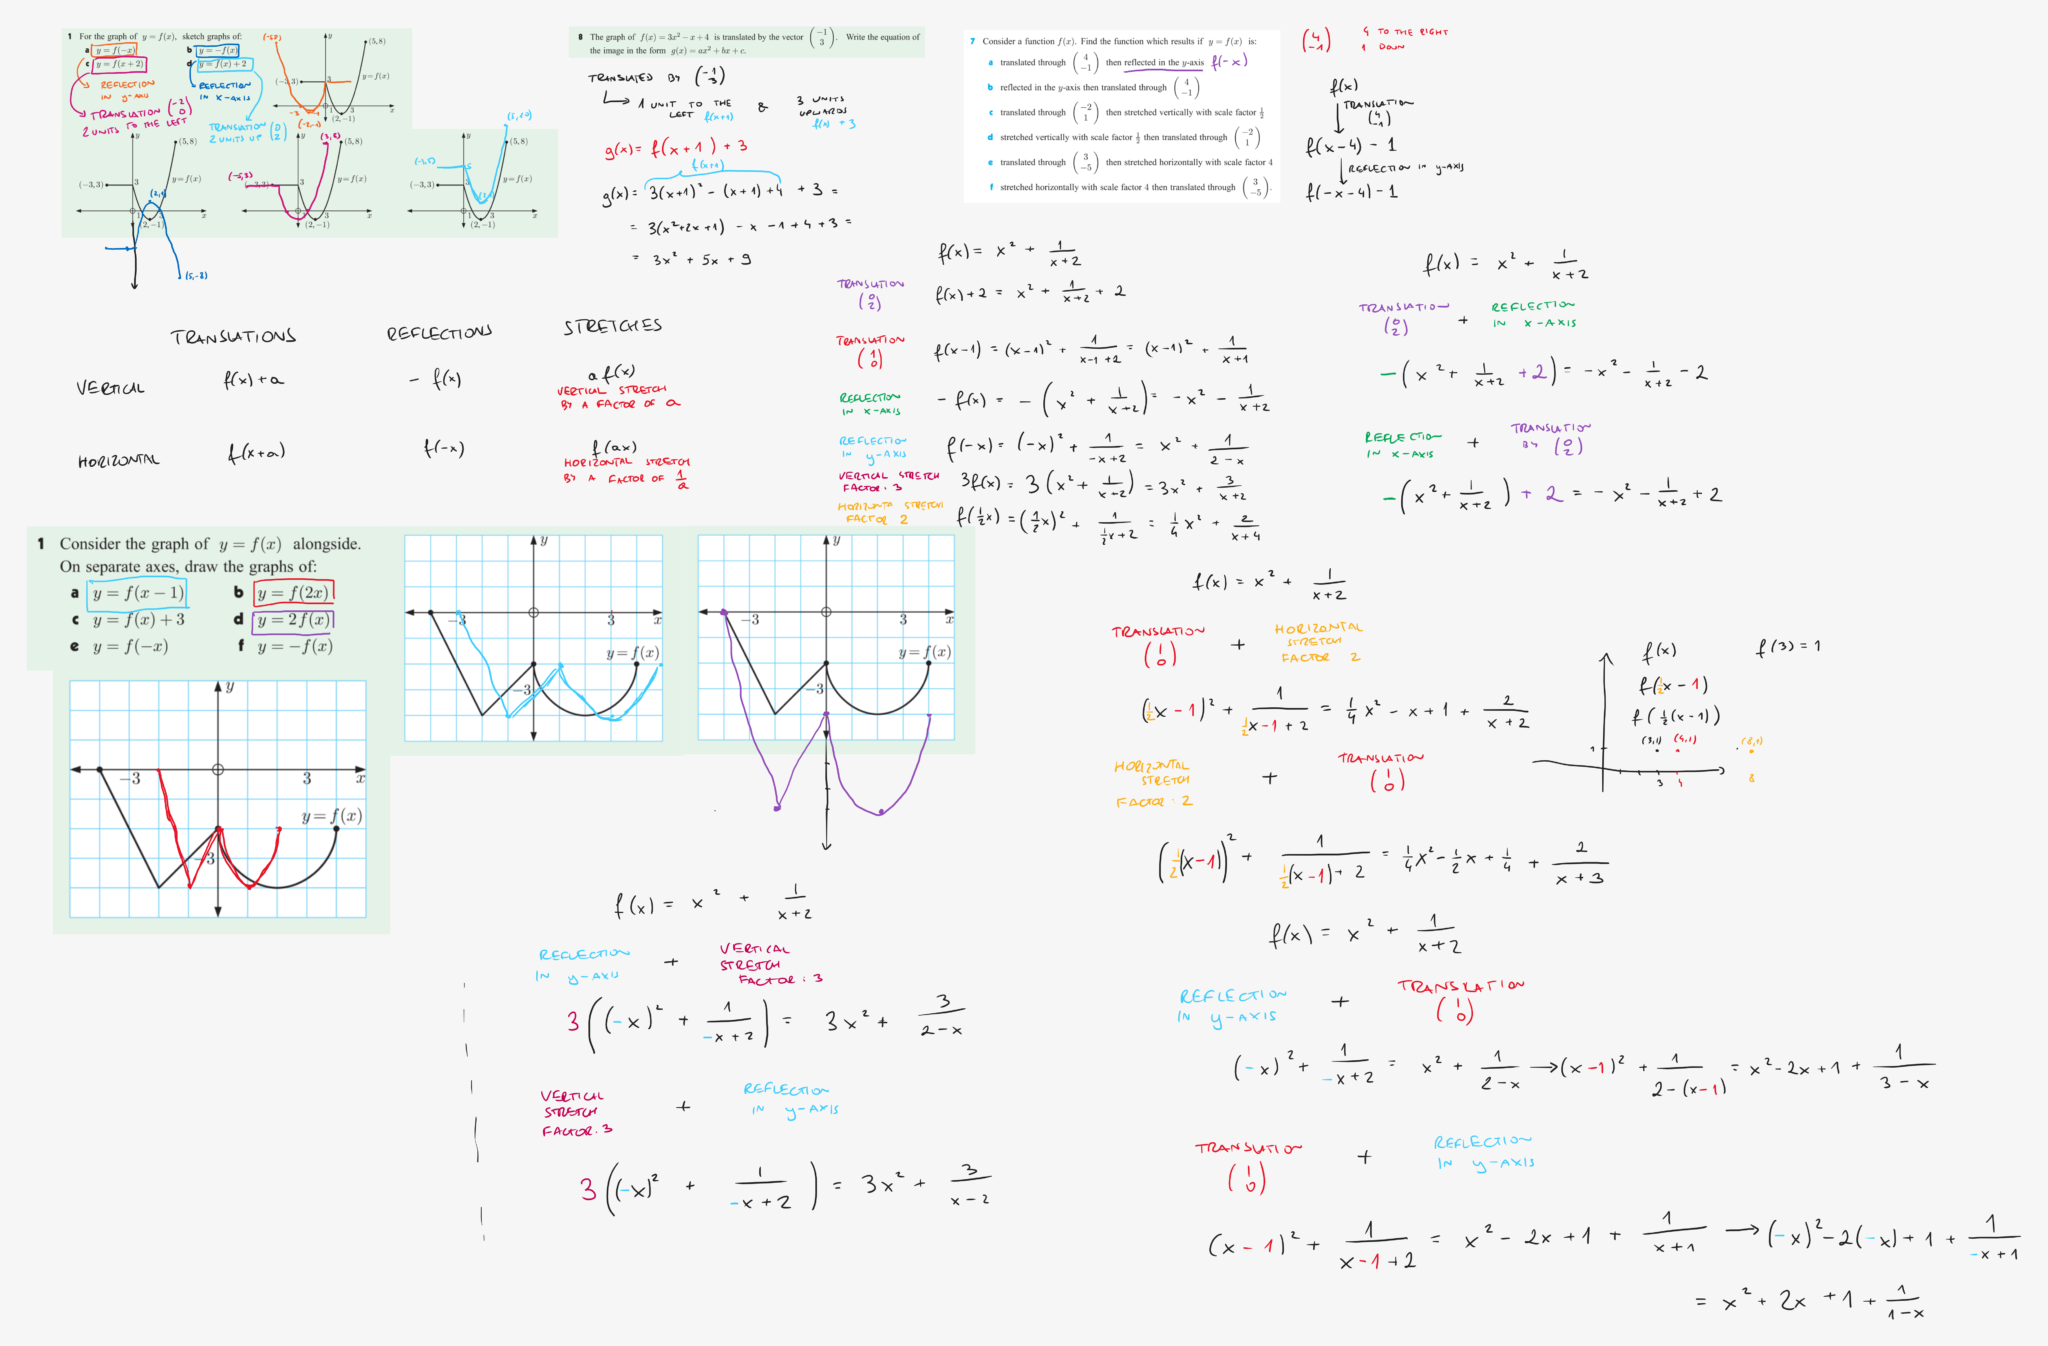 1 For the graph of y = f(x), sketch graphs of:
a y = f(−x) b y = −f(x)
c y = f(x + 2) d y = f(x) + 2
REFLECTION IN y-AXIS
REFLECTION IN x-AXIS
TRANSLATION (-2 0)
2 UNITS TO THE LEFT
TRANSLATION (0 2)
2 UNITS UP
(−3,3) (5,8) y = f(x) (2,−1)
(5,8) (−3,3) y = f(x) (2,−1) (2,1) (5,-8)
(5,8) (3,8) (-5,3) y = f(x) (2,−1)
(5,10) (5,8) (-3,5) (−3,3) y = f(x) (2,−1)
8 The graph of f(x) = 3x² − x + 4 is translated by the vector (−1 3). Write the equation of
the image in the form g(x) = ax² + bx + c.
TRANSLATED BY (-1 3)
1 UNIT TO THE LEFT f(x+1) & 3 UNITS UPWARDS f(x) + 3
g(x) = f(x+1) + 3
f(x+1)
g(x) = 3(x+1)² - (x+1) + 4 + 3 =
= 3(x²+2x+1) - x - 1 + 4 + 3 =
= 3x² + 5x + 9
7 Consider a function f(x). Find the function which results if y = f(x) is:
a translated through (4 −1) then reflected in the y-axis f(-x)
b reflected in the y-axis then translated through (4 −1)
c translated through (−2 1) then stretched vertically with scale factor ½
d stretched vertically with scale factor ½ then translated through (−2 1)
e translated through (3 −5) then stretched horizontally with scale factor 4
f stretched horizontally with scale factor 4 then translated through (3 −5).
(4 -1) 4 TO THE RIGHT
1 DOWN
f(x)
TRANSLATION (4 -1)
f(x-4) - 1
REFLECTION IN y-AXIS
f(-x-4) - 1
TRANSLATIONS REFLECTIONS STRETCHES
VERTICAL f(x)+a - f(x) a f(x)
VERTICAL STRETCH
BY A FACTOR OF a
HORIZONTAL f(x+a) f(-x) f(ax)
HORIZONTAL STRETCH
BY A FACTOR OF 1/a
f(x) = x² + 1/(x+2)
TRANSLATION (0 2) f(x)+2 = x² + 1/(x+2) + 2
TRANSLATION (1 0) f(x-1) = (x-1)² + 1/(x-1+2) = (x-1)² + 1/(x+1)
REFLECTION IN x-AXIS - f(x) = - (x² + 1/(x+2)) = -x² - 1/(x+2)
REFLECTION IN y-AXIS f(-x) = (-x)² + 1/(-x+2) = x² + 1/(2-x)
VERTICAL STRETCH FACTOR: 3 3f(x) = 3(x² + 1/(x+2)) = 3x² + 3/(x+2)
HORIZONTA STRETCH FACTOR 2 f(½x) = (½x)² + 1/(½x+2) = ¼x² + 2/(x+4)
f(x) = x² + 1/(x+2)
TRANSLATION (0 2) + REFLECTION IN x-AXIS
-(x² + 1/(x+2) + 2) = -x² - 1/(x+2) - 2
REFLECTION IN x-AXIS + TRANSLATION BY (0 2)
-(x² + 1/(x+2)) + 2 = -x² - 1/(x+2) + 2
1 Consider the graph of y = f(x) alongside.
On separate axes, draw the graphs of:
a y = f(x − 1) b y = f(2x)
c y = f(x) + 3 d y = 2f(x)
e y = f(−x) f y = −f(x)
y −3 3 x −3 y = f(x)
y −3 3 x −3 y = f(x)
y −3 3 x −3 y = f(x)
f(x) = x² + 1/(x+2)
TRANSLATION (1 0) + HORIZONTAL STRETCH FACTOR 2
(½x - 1)² + 1/(½x-1+2) = ¼x² - x + 1 + 2/(x+2)
HORIZONTAL STRETCH FACTOR: 2 + TRANSLATION (1 0)
(½(x-1))² + 1/(½(x-1)+2) = ¼x² - ½x + ¼ + 2/(x+3)
f(x) f(3) = 1
f(½x - 1)
f(½(x-1))
(3,1) (4,1)
1 3 4 8
f(x) = x² + 1/(x+2)
REFLECTION IN y-AXIS + VERTICAL STRETCH FACTOR: 3
3((-x)² + 1/(-x+2)) = 3x² + 3/(2-x)
VERTICAL STRETCH FACTOR: 3 + REFLECTION IN y-AXIS
3((-x)² + 1/(-x+2)) = 3x² + 3/(x-2)
f(x) = x² + 1/(x+2)
REFLECTION IN y-AXIS + TRANSLATION (1 0)
(-x)² + 1/(-x+2) = x² + 1/(2-x) → (x-1)² + 1/(2-(x-1)) = x²-2x+1 + 1/(3-x)
TRANSLATION (1 0) + REFLECTION IN y-AXIS
(x-1)² + 1/(x-1+2) = x² - 2x + 1 + 1/(x+1) → (-x)² - 2(-x) + 1 + 1/(-x+1)
= x² + 2x + 1 + 1/(1-x)